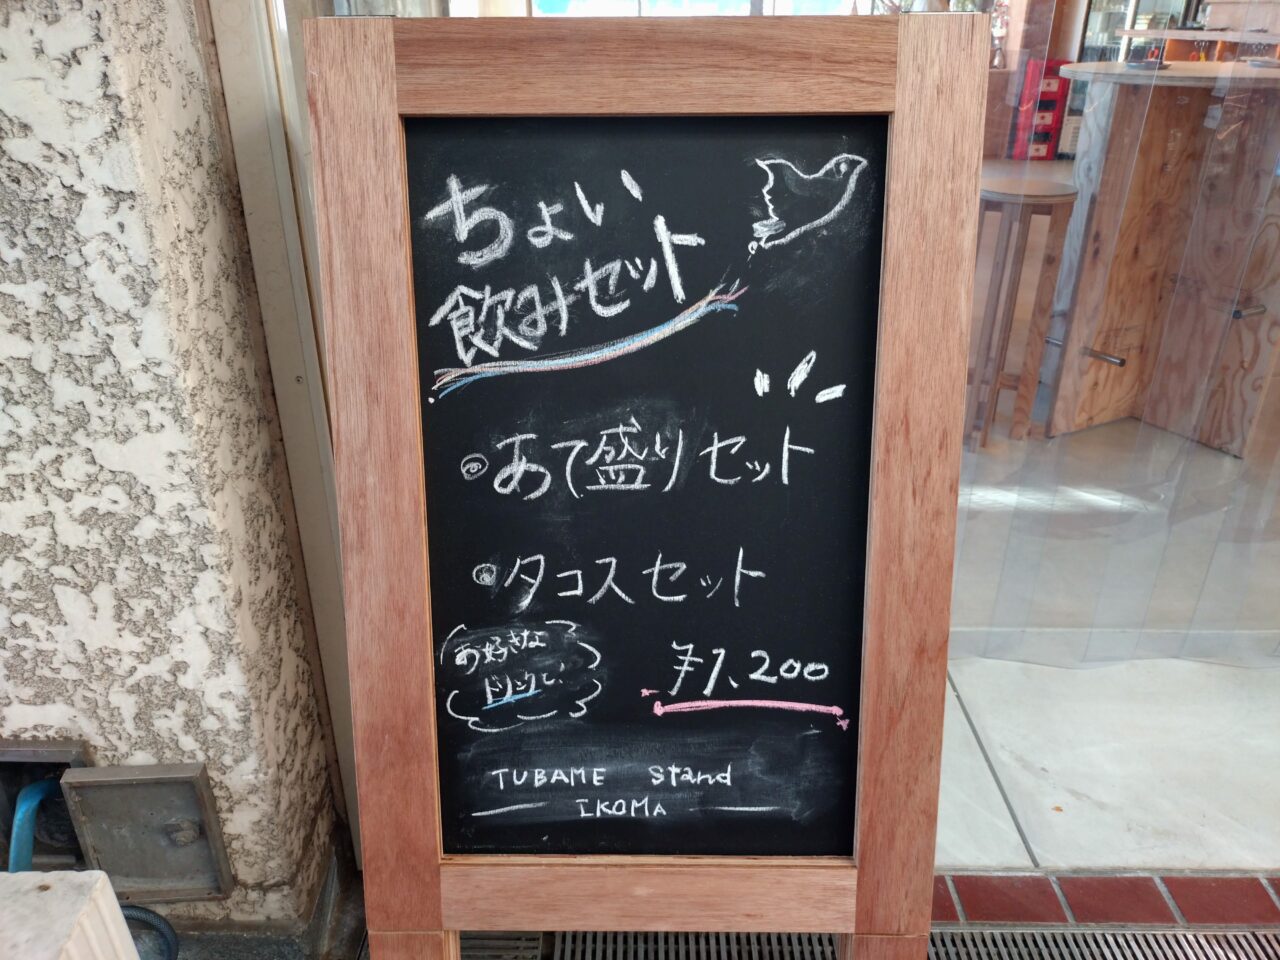 ちょい
飲みセット
◎あて盛りセット
◎タコスセット
お好きな
ドリンクと、
¥1,200
TUBAME Stand
IKOMA